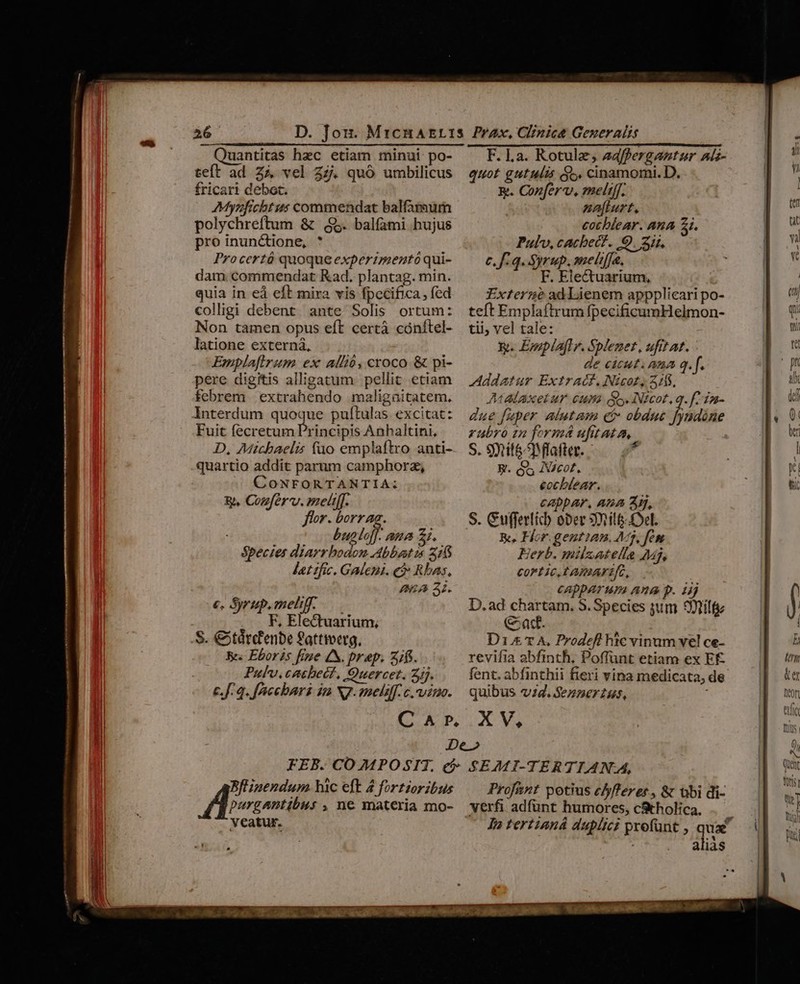 26 D. Joh. Michaelis Prax. Clinicæ Generalis
Quantitas hæc etiam minui po-
test ad ℥i. vel ℥ij. quô umbilicus
fricari debet.
Mynsichtus commendat balsamum
polychrestum & balsami hujus
pro inunctione, *
Pro certô quoque experimentô qui-
dam commendat Rad. plantag. min.
quia in eâ est mira vis specifica, sed
colligi debent ante Solis ortum:
Non tamen opus est certâ constel-
latione externâ.
Emplastrum ex alliô, croco & pi-
pere digitis alligatum pellit etiam
febrem extrahendo malignitatem.
Interdum quoque pustulas excitat:
Fuit secretum Principis Anhaltini.
D. Michaelis suo emplastro anti-
quartio addit parum camphoræ,
CONFORTANTIA:
℞. Conserv. meliss.
flor. borrag.
bugloss. ana ℥i.
Species diarrhodon Abbatis ʒiß
lætific. Galeni. & Rhas.
ana ʒi.
c. Syrup. meliss.
F. Electuarium,
S. Stärckende Lattwerg.
℞. Eboris sine △. præp. ʒiß.
Pulv. cachect. Quercet. ʒij.
c. s. q. sacchari in ▽. meliss. c. vino.
F. l.a. Rotulæ, adspergantur ali-
quot gutulis cinamomi. D.
℞. Conserv. meliss.
nasturt.
cochlear. ana ℥i.
Pulv. cachect. Q. ʒii.
c. s. q. Syrup. melissæ.
F. Electuarium.
Externè ad Lienem appplicari po-
test Emplastrum specificum Helmon-
tii, vel tale:
℞. Emplastr. Splenet. usitat.
de cicut. ana q. s.
Addatur Extract. Nicot. ʒiß.
Malaxetur cum Nicot. q. s. in-
duc super alutam & obduc syndone
rubrô in formâ usitatâ,
S. Miltz-Pflaster.
℞. Nicot.
cochlear.
cappar. ana ʒij.
S. Eusserlich oder Miltz-Oel.
℞. Flor. gentian. Mj. sem
Herb. milzatellæ Mj,
cortic. tamarisc,
capparum ana p. iij
D. ad chartam. S. Species zum Miltz
Sack.
DIÆTA. Prodest hîc vinum vel ce-
revisia absinth. Possunt etiam ex Es-
sent. absinthii fieri vina medicata, de
quibus vid. Sennertus,
CAP. XV.
De
FEB. COMPOSIT. & SEMI-TERTIANA,
Abstinendum hîc est à fortioribus
purgantibus, ne materia mo-
veatur.
Prosunt potius clysteres, & ubi di-
versi adsunt humores, catholica.
In tertianâ duplici prosunt, quæ
aliàs